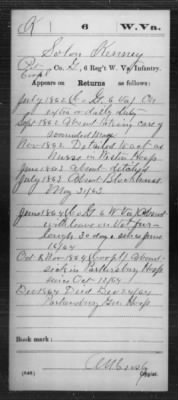 K | 6 | W. Va.
Solon Kenney
Pvt Corpl, Co. G, 6 Reg't W. Va. Infantry.
Appears on
Returns as follows:
July 1862 Co. G. 6 Va. On
extra or daily duty
Sept 1862 Absent taking care of
wounded men
Nov 1862 Detailed to act as
Nurse in Hosp
June 1863 absent
July 1863 absent Blockhouse
May 31/63
June 1864 Co G 6 W Va Absent
with leave on Vet fur-
lough 30 days since June
16/64
Oct & Nov 1864 absent
sick in Parkersburg Hosp
since Oct 12/64
Dec 1864 Died Dec 24/64
Parkersburg Gen Hosp
Book mark:
(546)
Copyist.